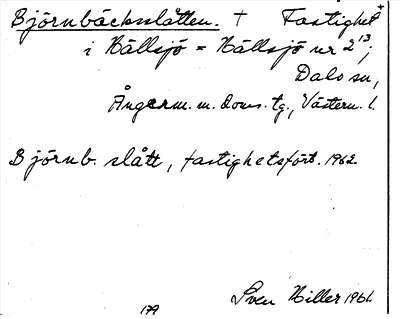 Björnbäcksslåtten. † Fastighet+
i Hällsjö = Hällsjö nr 2¹³;
Dals sn,
Ångerm. m. doms. tg., Västern. l.
Björnb. slått, fastighetsfört. 1962.
Sven Hiller 1961.
179